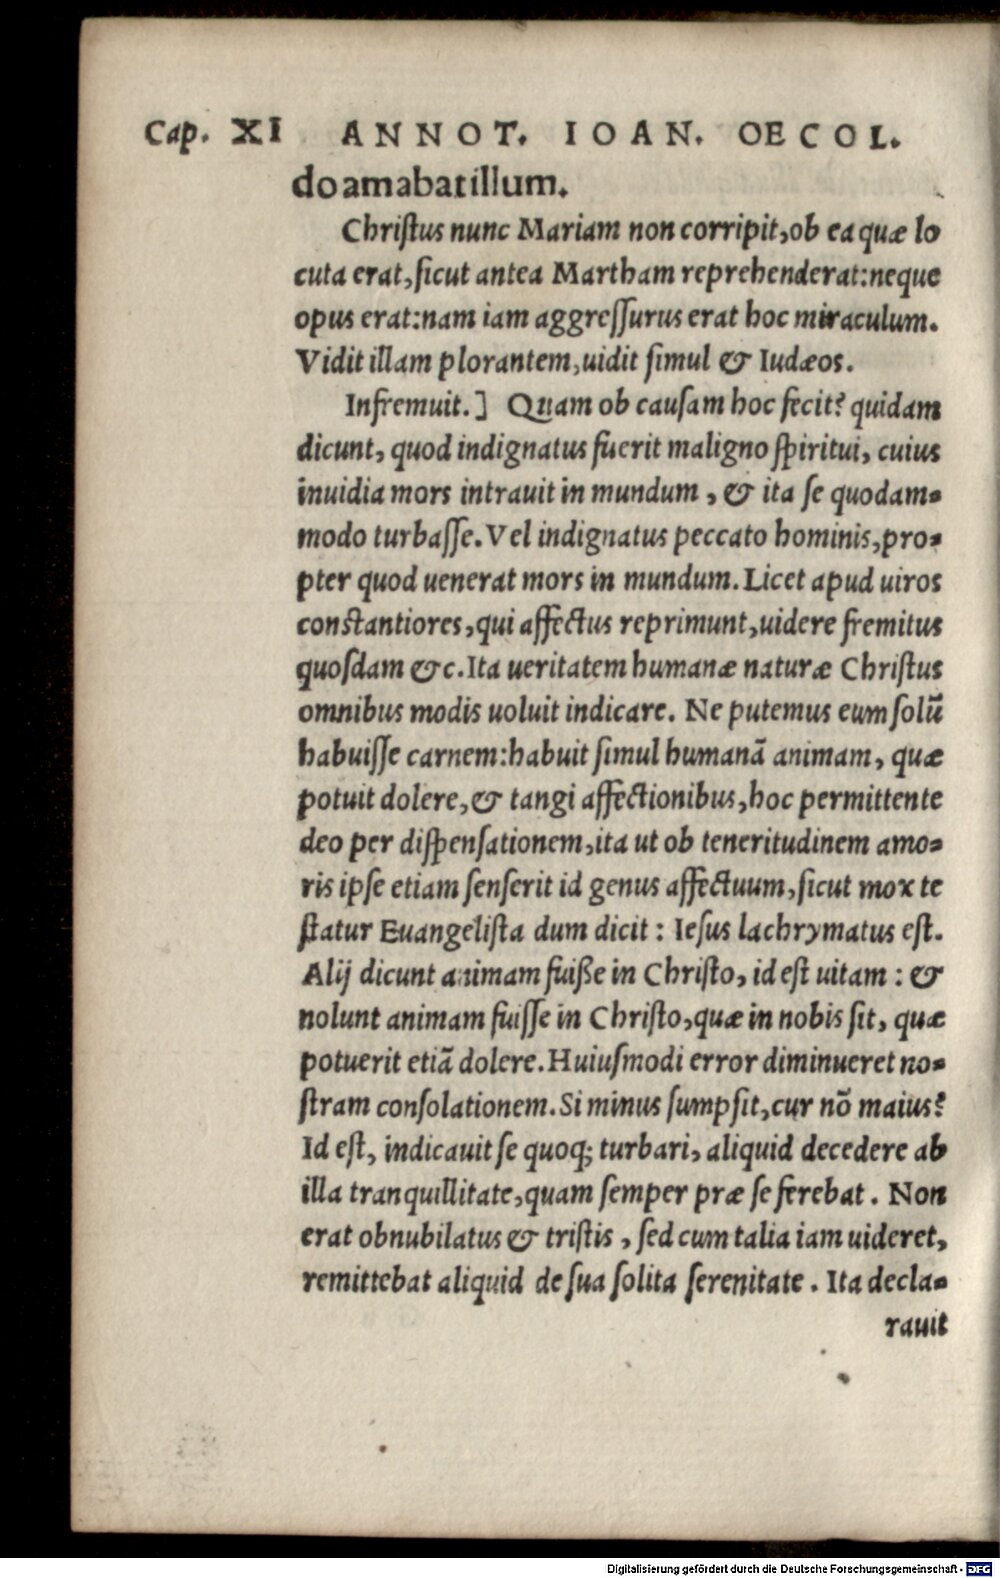 Cap. XI ANNOT. IOAN. OECOL.
do amabat illum.
Chriſtus nunc Mariam non corripit, ob ea quæ lo
cuta erat, ſicut antea Martham reprehenderat: neque
opus erat: nam iam aggreſſurus erat hoc miraculum.
Vidit illam plorantem, uidit ſimul & Iudæos.
Infremuit.] Quam ob cauſam hoc fecit? quidam
dicunt, quod indignatus fuerit maligno ſpiritui, cuius
inuidia mors intrauit in mundum, & ita ſe quodam-
modo turbaſſe. Vel indignatus peccato hominis, pro-
pter quod uenerat mors in mundum. Licet apud uiros
conſtantiores, qui affectus reprimunt, uidere fremitus
quoſdam &c. Ita ueritatem humanæ naturæ Chriſtus
omnibus modis uoluit indicare. Ne putemus eum ſolū
habuiſſe carnem: habuit ſimul humanā animam, quæ
potuit dolere, & tangi affectionibus, hoc permittente
deo per diſpenſationem, ita ut ob teneritudinem amo-
ris ipſe etiam ſenſerit id genus affectuum, ſicut mox te
ſtatur Euangeliſta dum dicit: Ieſus lachrymatus eſt.
Alij dicunt animam fuiße in Chriſto, id eſt uitam: &
nolunt animam fuiſſe in Chriſto, quæ in nobis ſit, quæ
potuerit etiā dolere. Huiuſmodi error diminueret no-
ſtram conſolationem. Si minus ſumpſit, cur nō maius?
Id eſt, indicauit ſe quoq; turbari, aliquid decedere ab
illa tranquillitate, quam ſemper præ ſe ferebat. Non
erat obnubilatus & triſtis, ſed cum talia iam uideret,
remittebat aliquid de ſua ſolita ſerenitate. Ita decla-
rauit
Digitalisierung gefördert durch die Deutsche Forschungsgemeinschaft - DFG